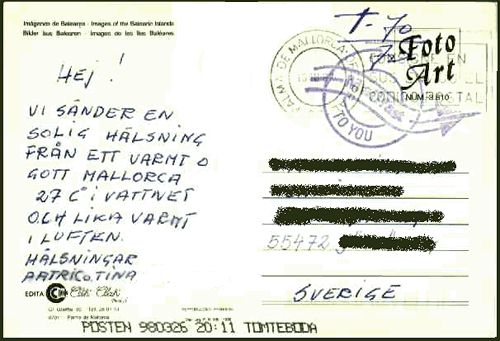 Imágenes de Baleares - Images of the Balearic Islands
Bilder aus Balearen - Images de les Iles Baléares
T-70
7
PALMA DE MALLORCA
Foto
Art
NUM. 3810
TO YOU
HEJ!
VI SÄNDER EN
SOLIG HÄLSNING
FRÅN ETT VARMT O
GOTT MALLORCA
27 C° I VATTNET
OCH LIKA VARMT
I LUFTEN.
HÄLSNINGAR
PATRIC o TINA
55472
SVERIGE
EDITA
Clik Clak
Palma de Mallorca
POSTEN 980326 20:11 TOMTEBODA